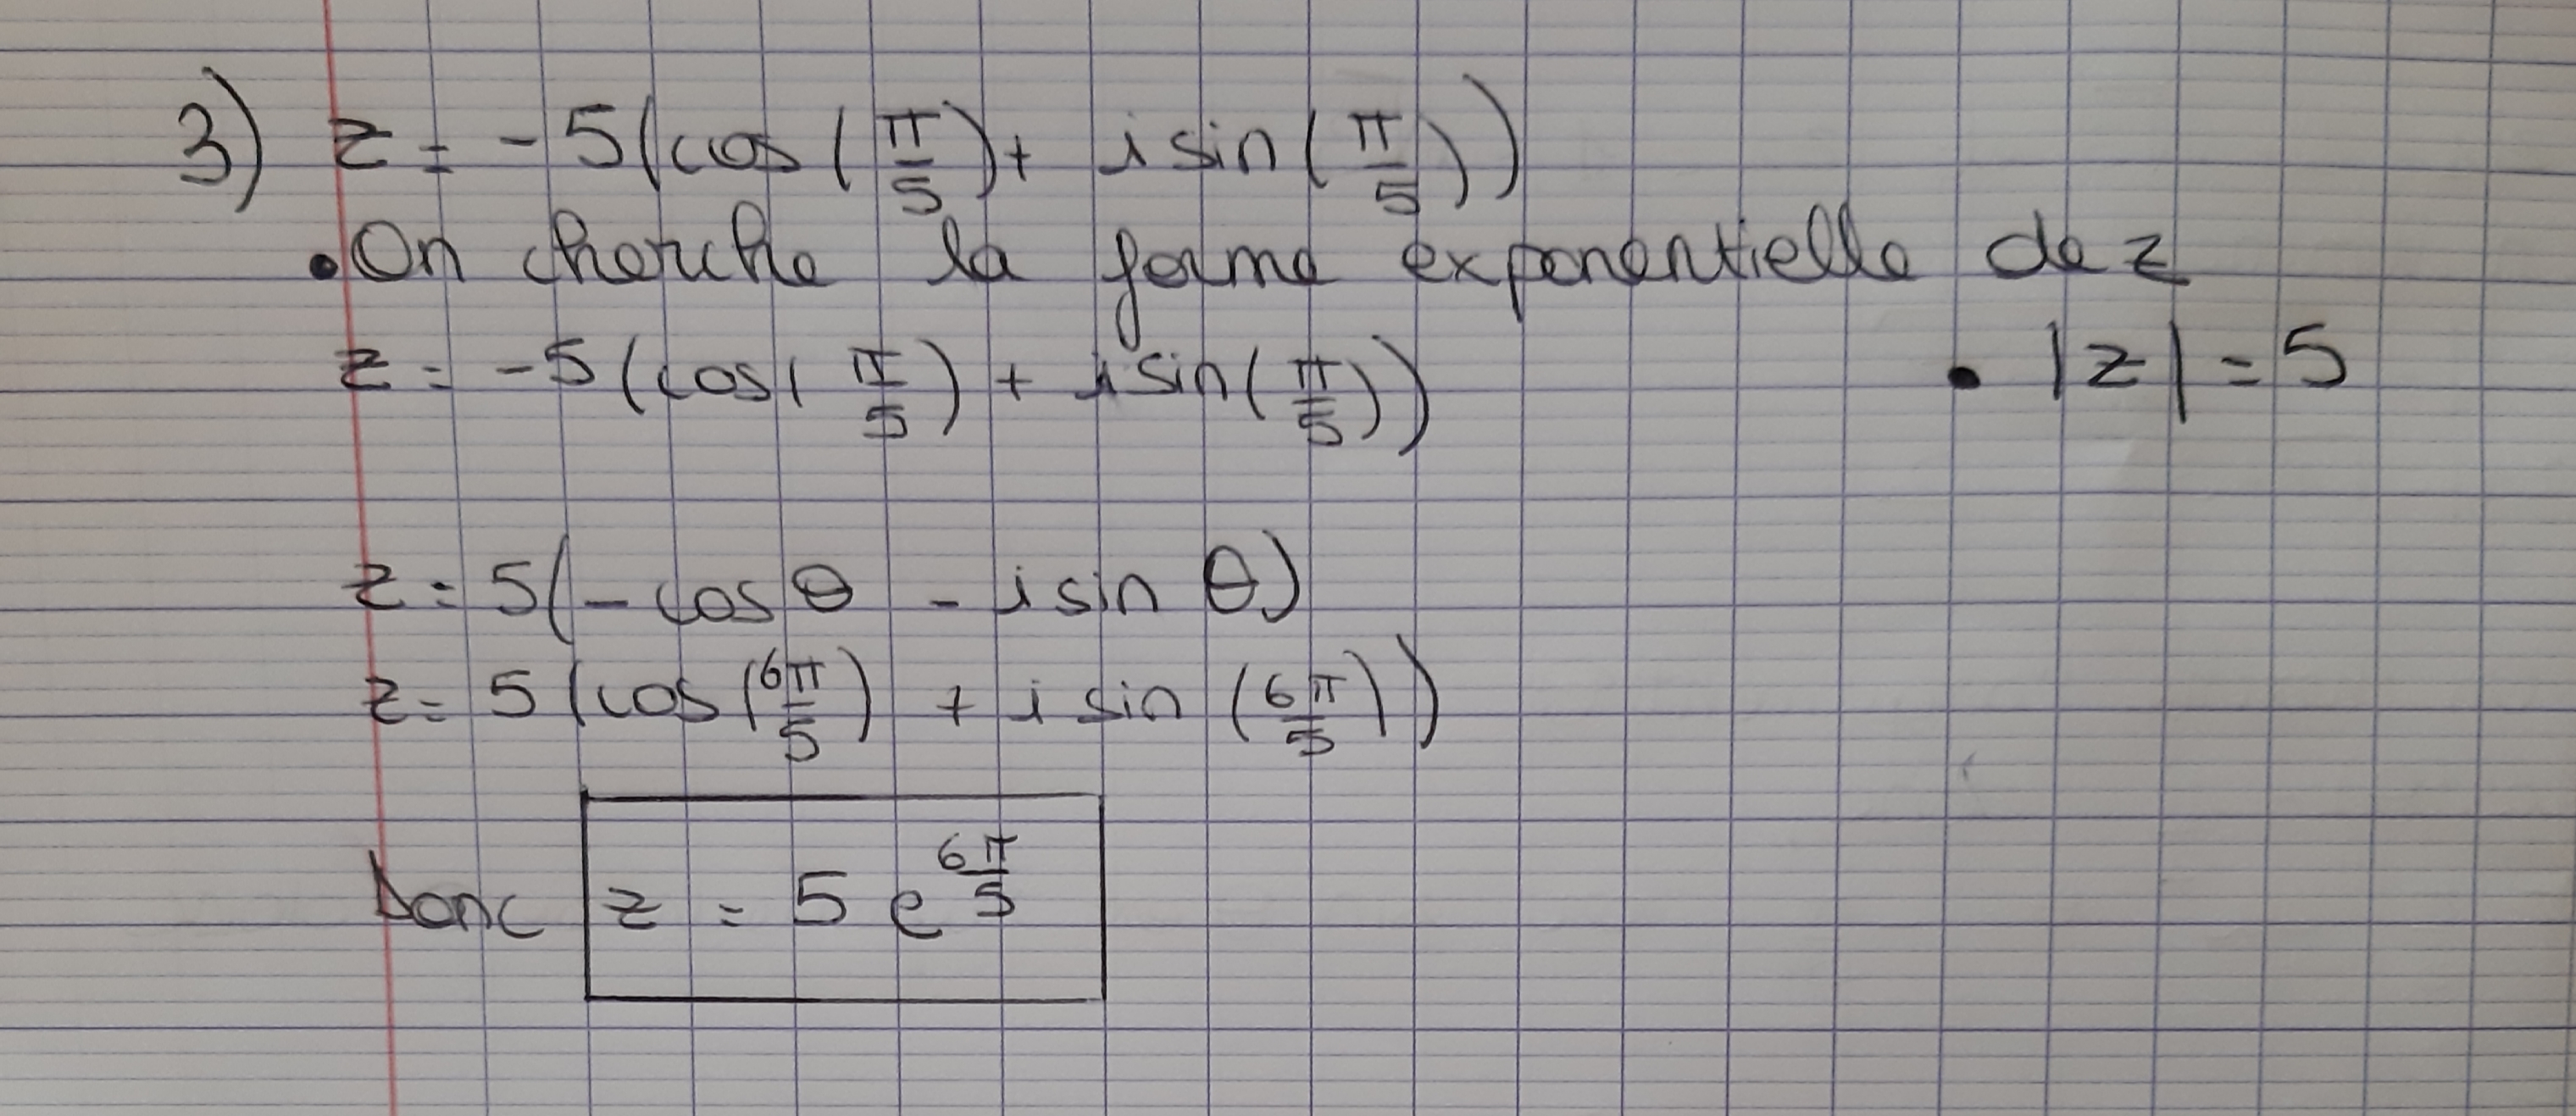 3) z = -5(cos(π/5) + i sin(π/5))
• On cherche la forme exponentielle de z
z = -5(cos(π/5) + i sin(π/5))
• |z| = 5
z = 5(-cos θ - i sin θ)
z = 5(cos(6π/5) + i sin(6π/5))
Donc z = 5 e^(6π/5)